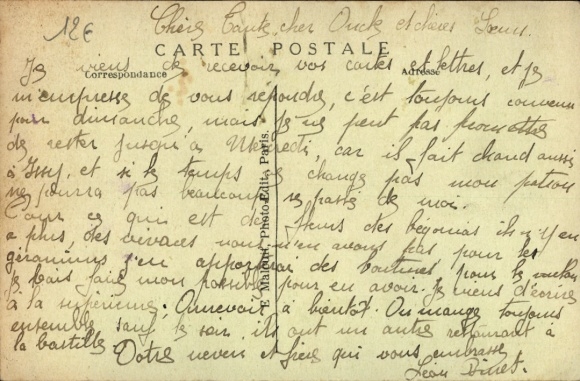 12€
Chère Tante, cher Oncle et chères Soeurs.
CARTE POSTALE
Correspondance
Adresse
Je viens de recevoir vos cartes et lettres, et je
m'empresse de vous répondre, c'est toujours convenu
pour dimanche, mais je ne peut pas promettre
de rester jusqu'à Mercredi, car il fait chaud aussi
à Issy, et si le temps ne change pas mon patron
ne pourra pas beaucoup se passer de moi.
Pour ce qui est des fleurs des bégonias il n'y en
a plus, des vivaces nous n'en avons pas pour les
géraniums j'en apporterai des boutures pour le
je vais faire mon possible pour en avoir. Je viens d'écrire
à la supérieure; Aurevoir à bientôt. On mange toujours
ensemble sauf le soir, ils ont un autre restaurant à
la bastille
Votre neveu et frère qui vous embrasse
Léon
E. Malouf, Photo-Edit, Paris.